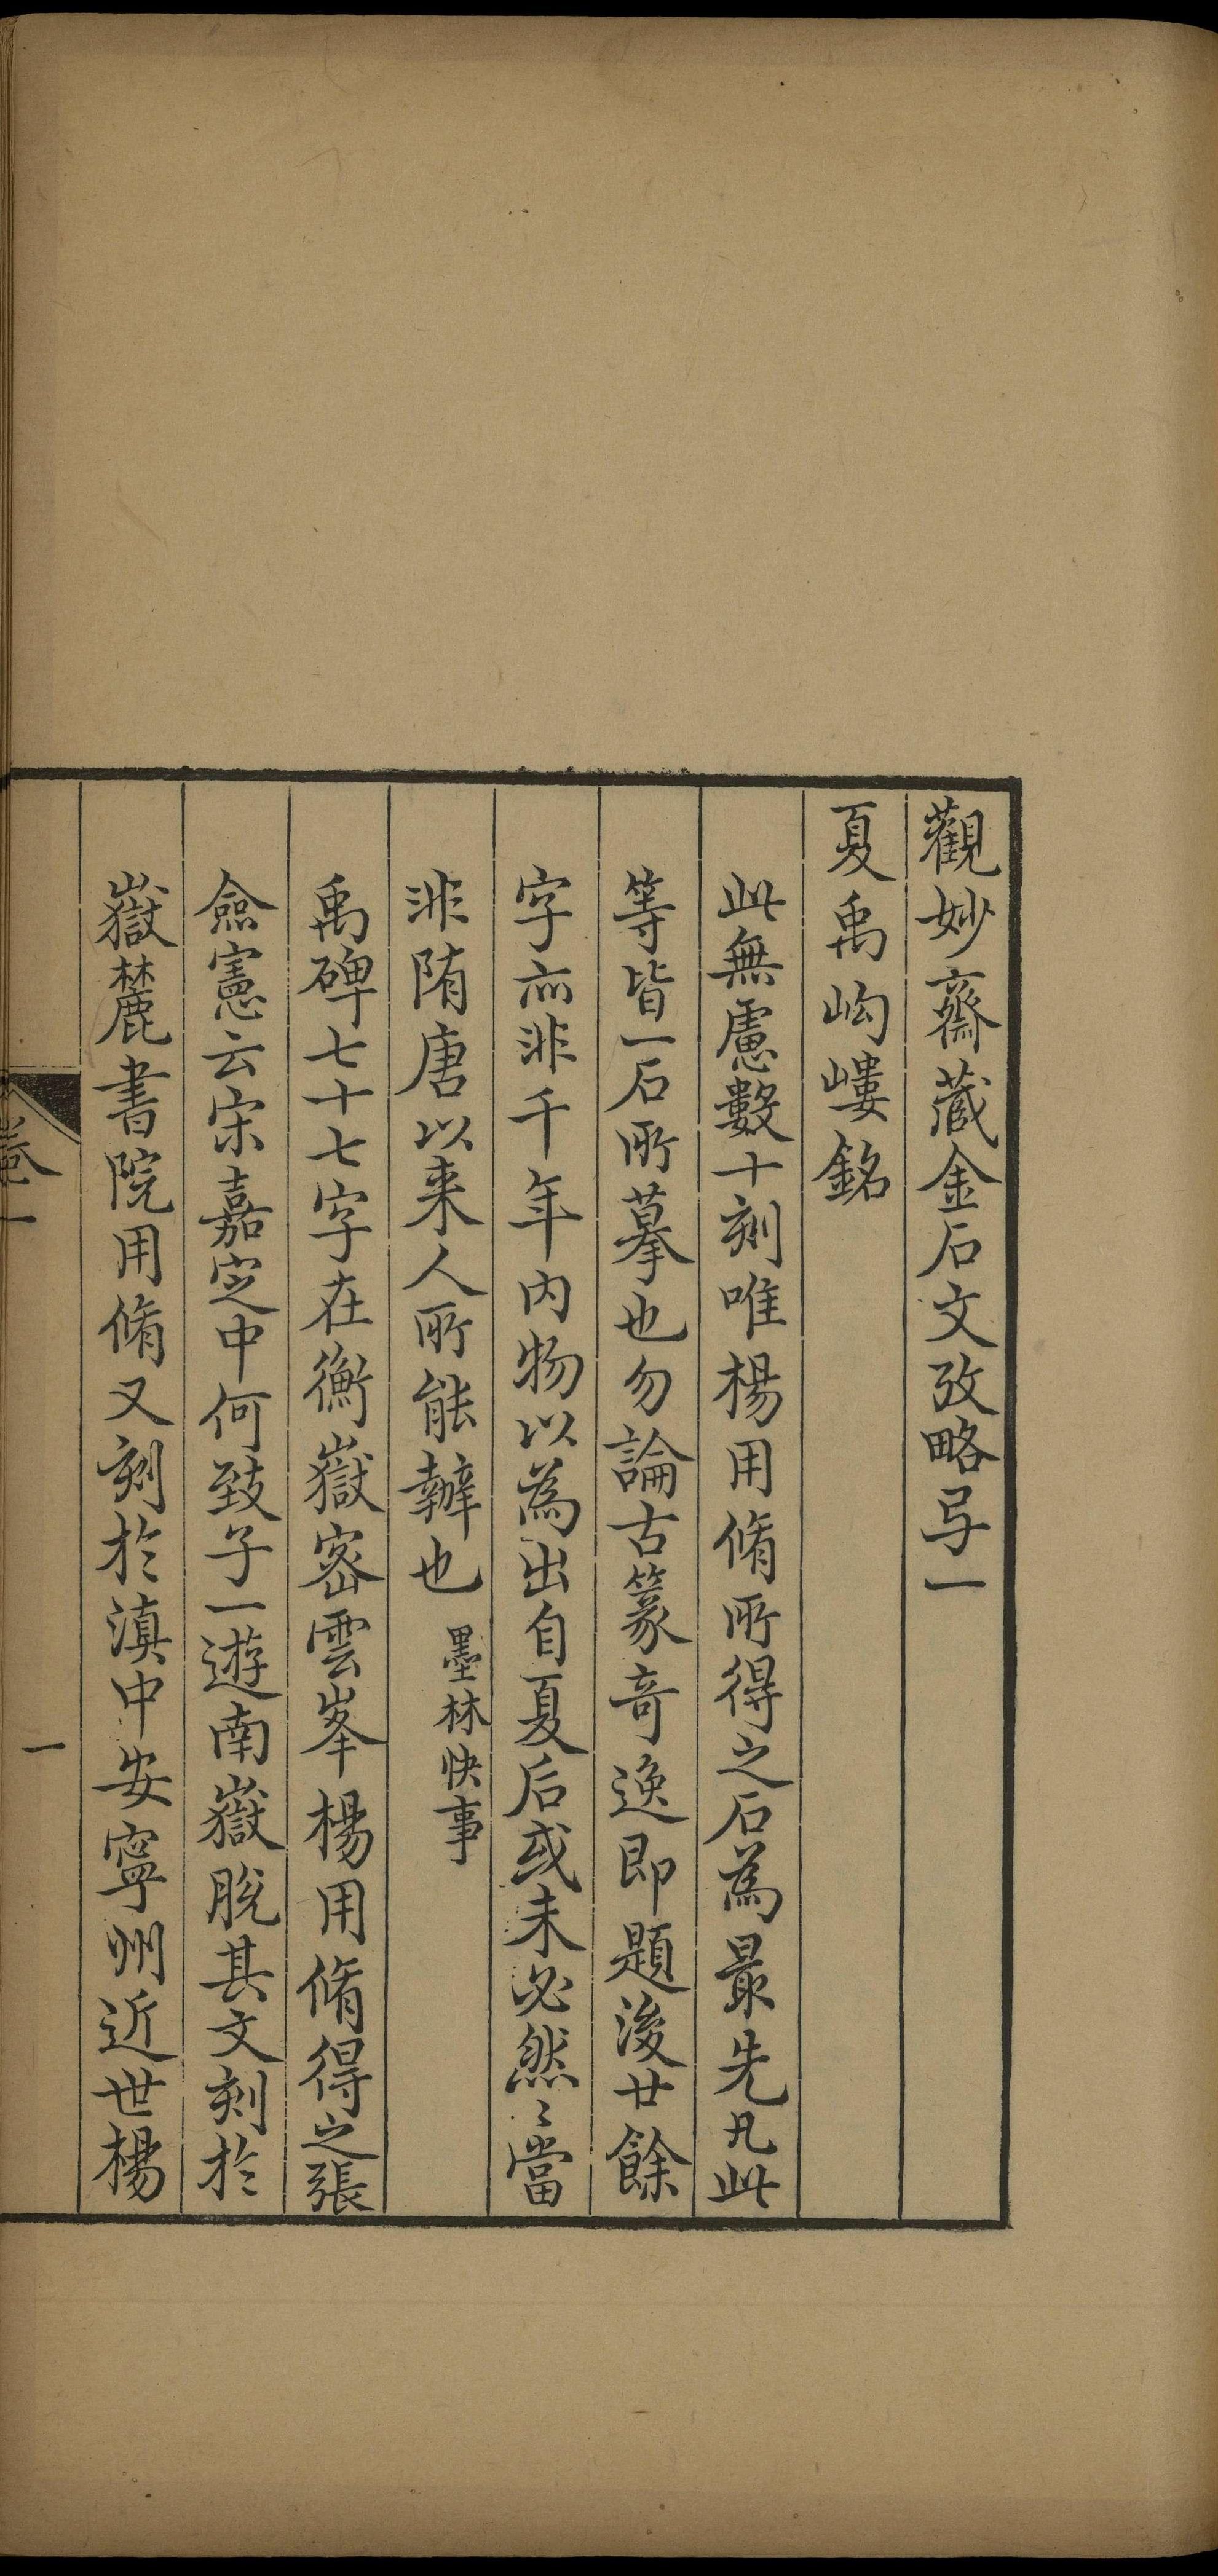 觀妙齋藏金石文攷略弓一
夏禹岣嶁銘
此無慮數十刻唯楊用脩所得之石為最先凡此
等皆一石所摹也勿論古篆奇逸即題後廿餘
字亦非千年內物以為出自夏后或未必然〻當
非隋唐以来人所能辦也 墨林快事
禹碑七十七字在衡嶽密雲峯楊用脩得之張
僉憲云宋嘉定中何致子一遊南嶽脫其文刻於
嶽麓書院用脩又刻於滇中安寧州近世楊
卷一
一